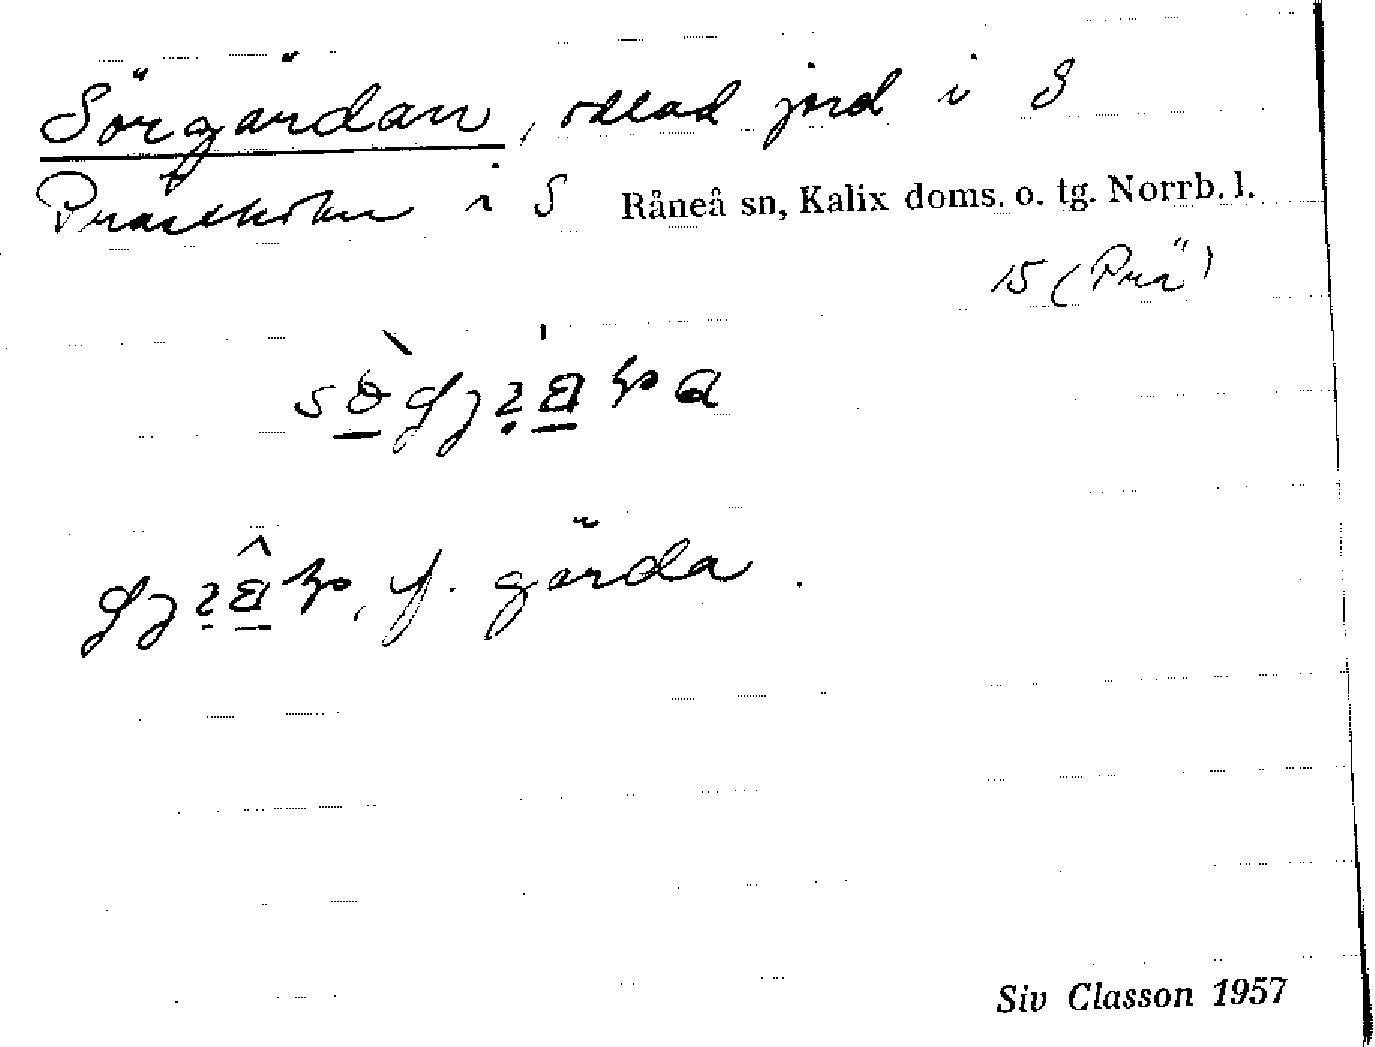 Sörgärdan, odlad jord i S
Prästholm i S Råneå sn, Kalix doms. o. tg. Norrb. l.
15 (Prä)
f. gärda.
Siv Classon 1957